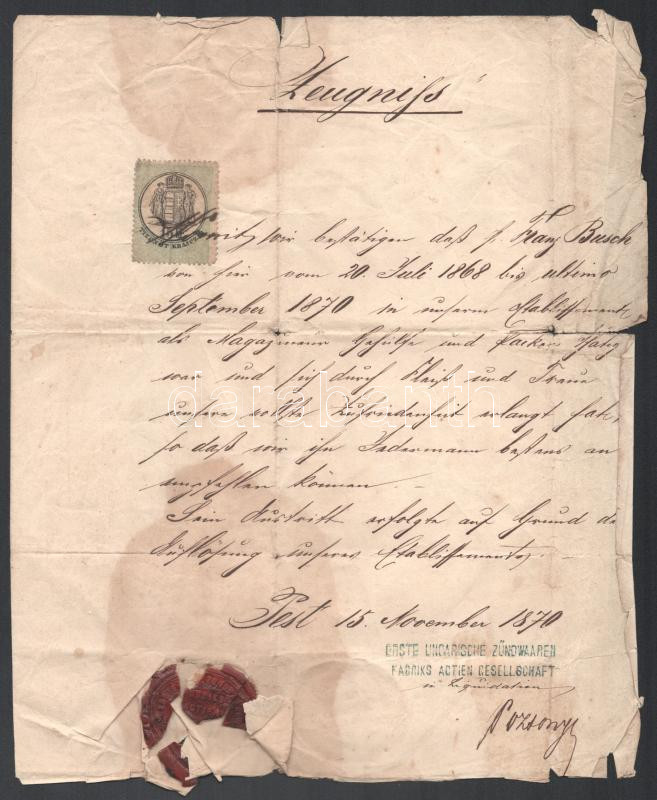 Zeugniß
Womit wir bestätigen daß H. Franz Busch
von hier vom 20. Juli 1868 bis ultimo
September 1870 in unserem Etablissement
als Magazineur Gehülfe und Packer thätig
war und sich durch Fleiß und Treue
unsere vollste Zufriedenheit erlangt hat,
so daß wir ihn Jedermann bestens an
empfehlen können. —
Sein Austritt erfolgte auf Grund de
Auflösung unseres Etablissements. —
Pest 15. November 1870
ERSTE UNGARISCHE ZÜNDWAAREN
FABRIKS ACTIEN GESELLSCHAFT
in Liquidation
darabanth